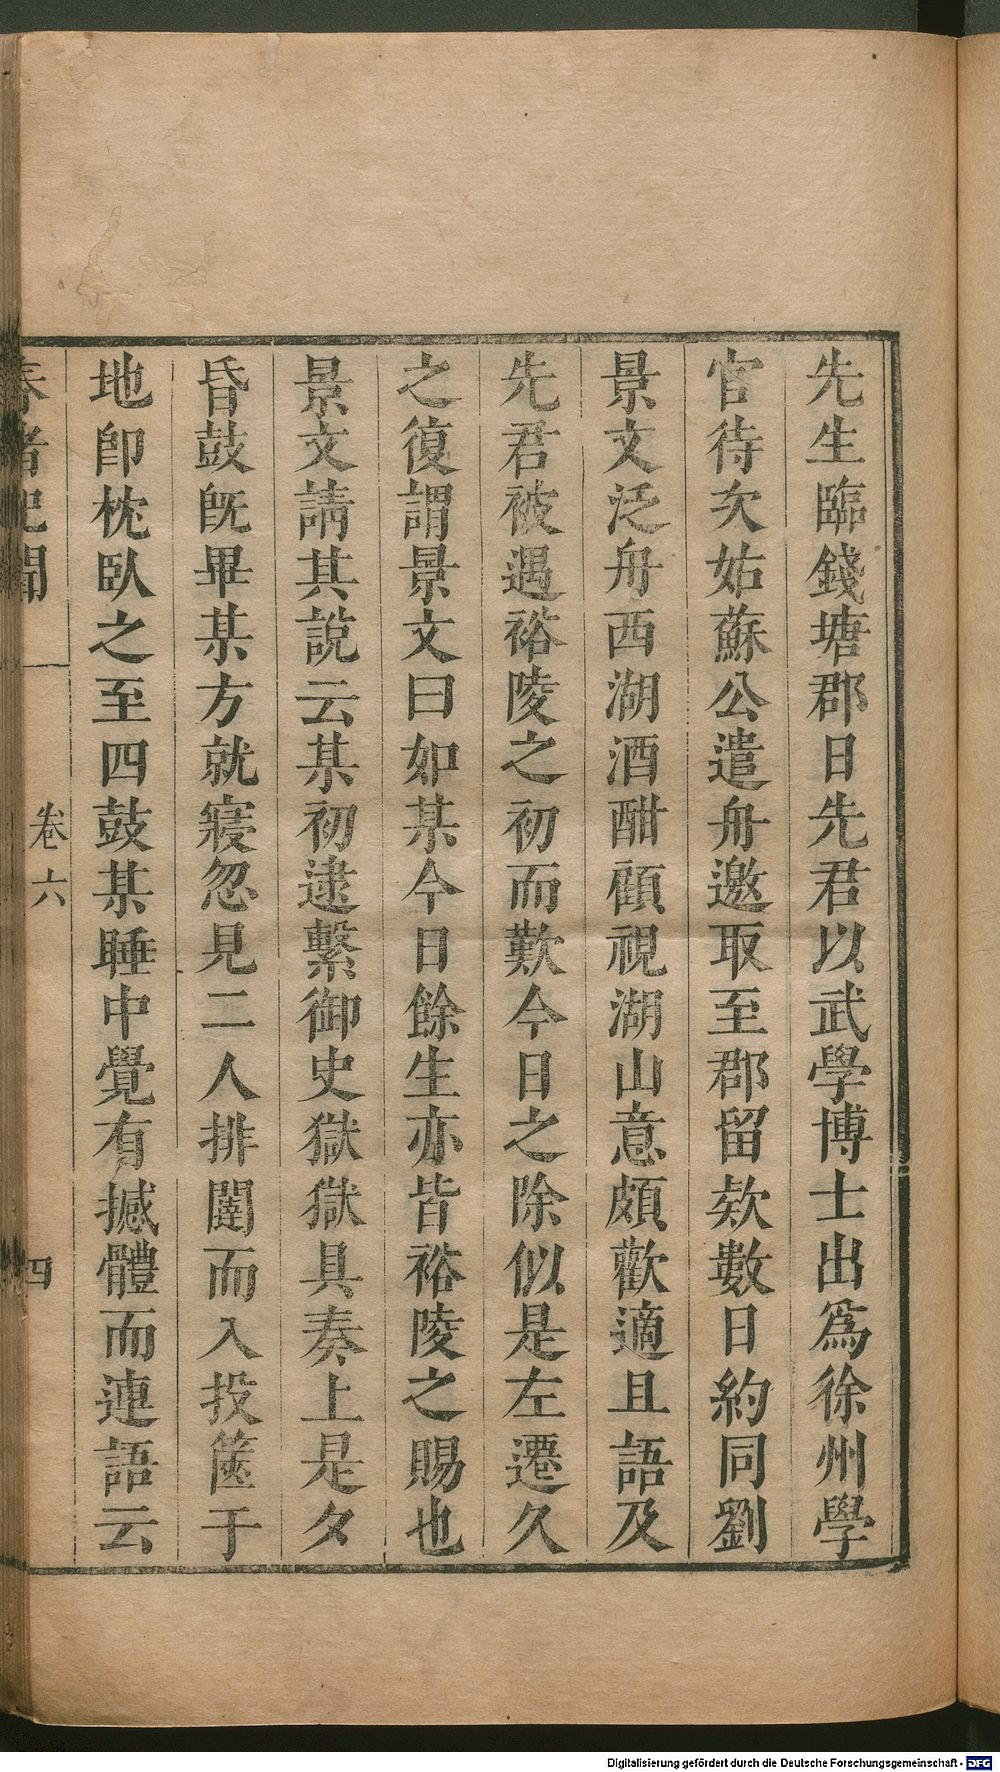 先生臨錢塘郡日先君以武學博士出爲徐州學
官待次姑蘇公遣舟邀取至郡留欵數日約同劉
景文泛舟西湖酒酣顧視湖山意頗歡適且語及
先君被遇裕陵之初而歎今日之除似是左遷久
之復謂景文曰如某今日餘生亦皆裕陵之賜也
景文請其說云某初逮繫御史獄獄具奏上是夕
昏鼓既畢某方就寢忽見二人排闥而入投篋于
地卽枕臥之至四鼓某睡中覺有撼體而連語云
春渚記聞 卷六 四
Digitalisierung gefördert durch die Deutsche Forschungsgemeinschaft - DFG